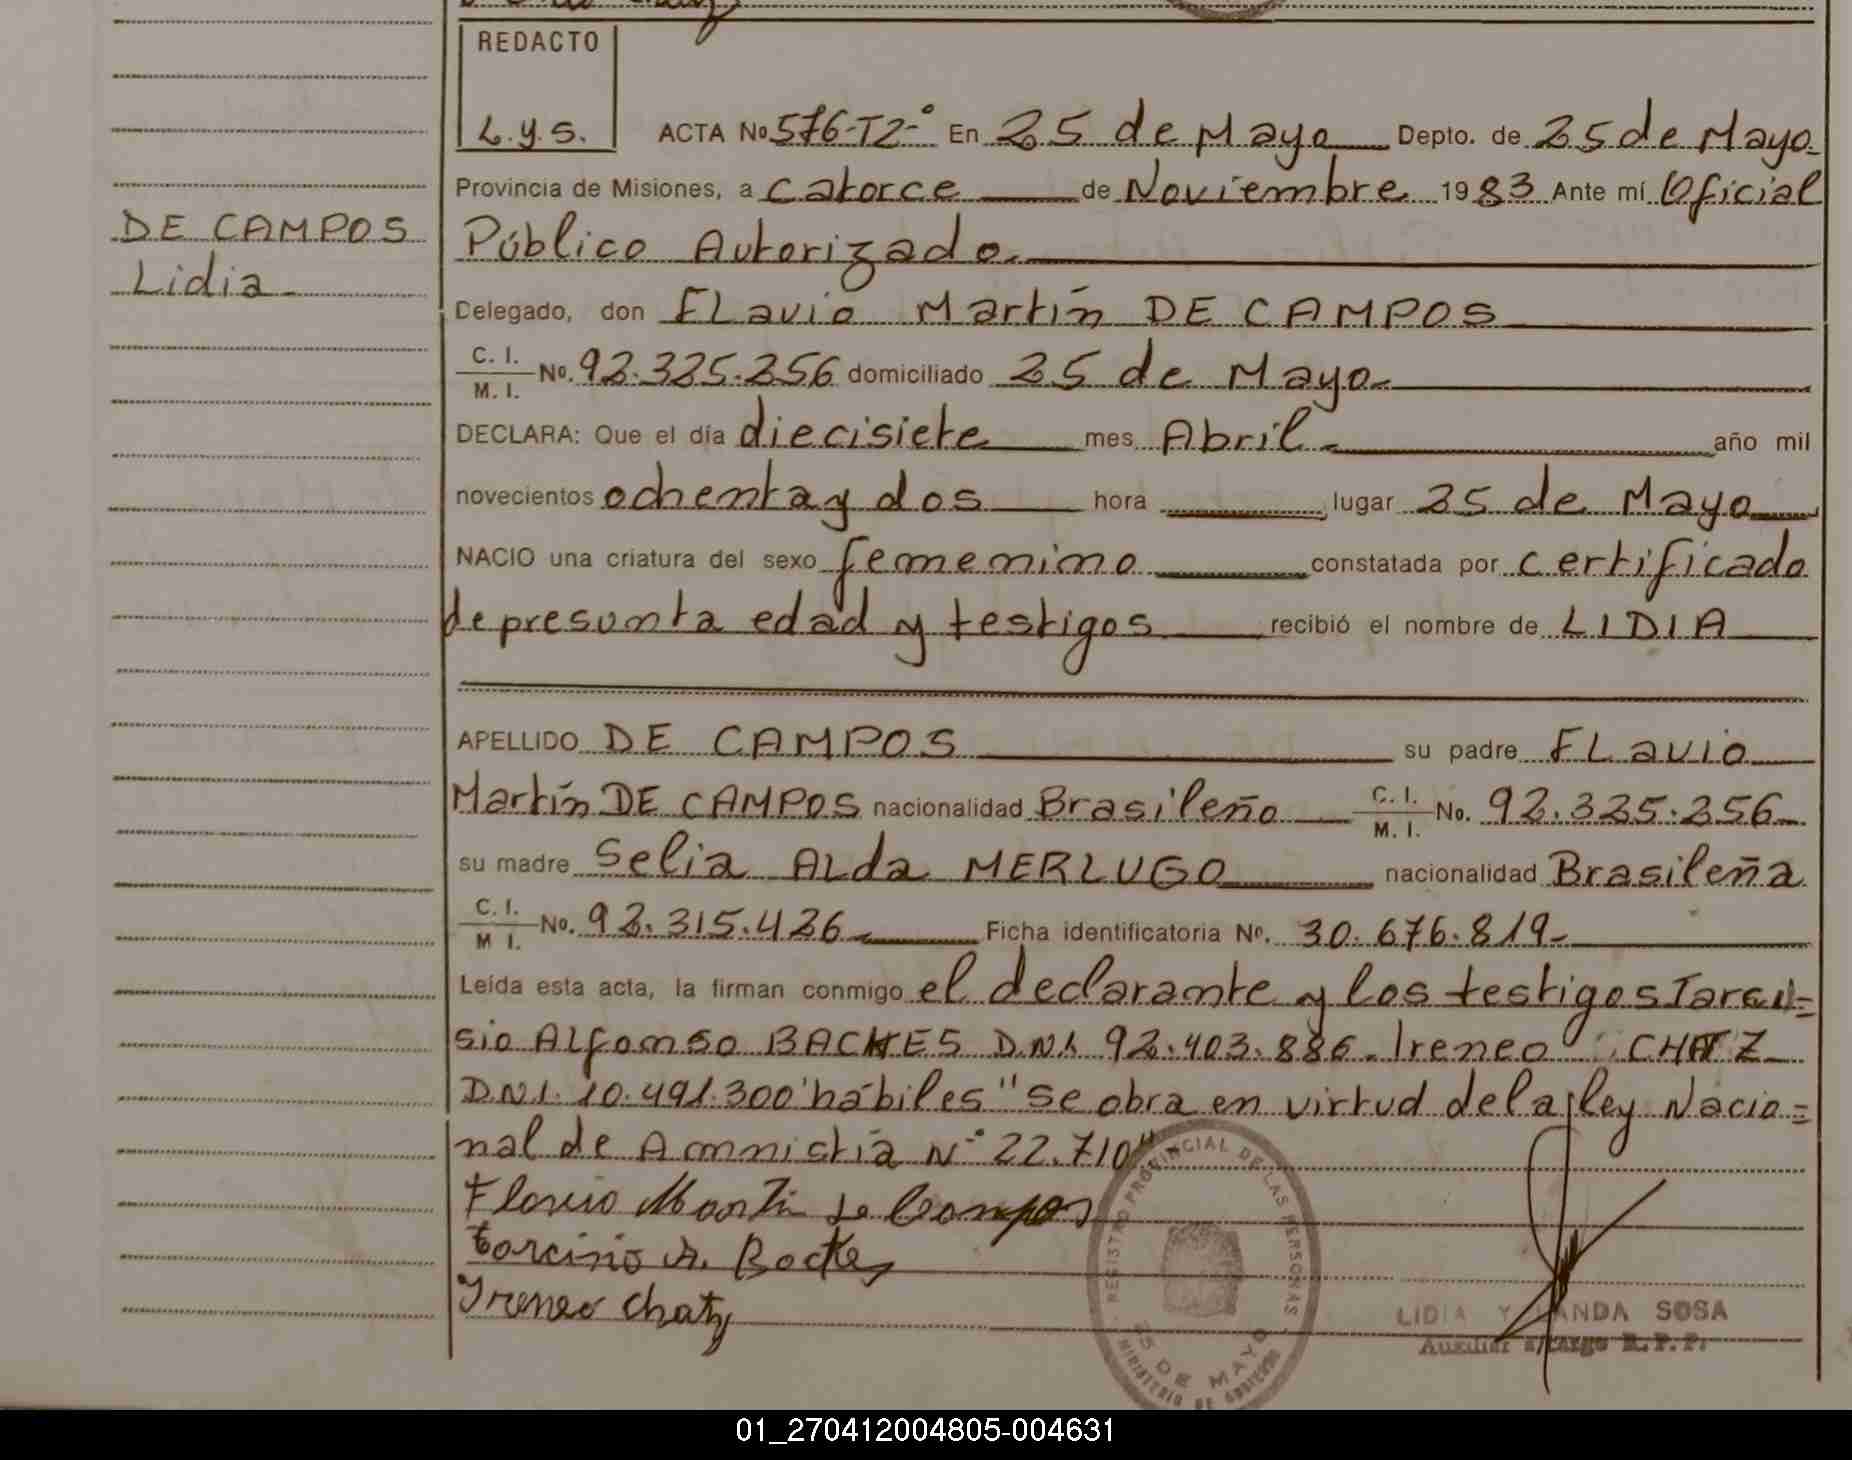 REDACTO
L.y.S.
ACTA No 576-T2-° En 25 de Mayo Depto. de 25 de Mayo.
Provincia de Misiones, a catorce de Noviembre 1983 Ante mí Oficial
Público Autorizado.
DE CAMPOS
Lidia
Delegado, don FLavio Martín DE CAMPOS
C. I.
M. I. No. 92.325.256 domiciliado 25 de Mayo.
DECLARA: Que el día diecisiete mes Abril año mil
novecientos ochenta y dos hora lugar 25 de Mayo
NACIO una criatura del sexo femenino constatada por certificado
de presunta edad y testigos recibió el nombre de LIDIA
APELLIDO DE CAMPOS su padre FLavio
Martín DE CAMPOS nacionalidad Brasileño C. I. M. I. No. 92.325.256
su madre Selia ALda MERLUGO nacionalidad Brasileña
C. I.
M I. No. 92.315.426 Ficha identificatoria No. 30.676.819-
Leída esta acta, la firman conmigo el declarante y los testigos Tarcu=
sio ALfonso BACKES D.N.I. 92.403.886. Ireneo CHATZ
D.N.I. 10.491.300 habiles "se obra en virtud de la ley Nacio=
nal de Amnistia N° 22.710"
Flavio Martin de Campos
Tarcisio A. Backes
Ireneo Chatz
REGISTRO PROVINCIAL DE LAS PERSONAS
25 DE MAYO
MINISTERIO DE GOBIERNO
LIDIA Y LANDA SOSA
Auxiliar a/cargo R.P.P.
01_270412004805-004631